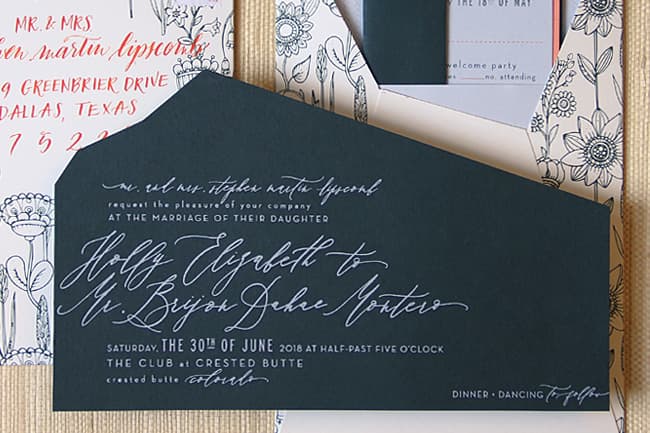 MR. & MRS.
hen martin lipscomb
9 GREENBRIER DRIVE
DALLAS, TEXAS
7 5 2 2
THE 18TH OF MAY
welcome party
no. attending
mr. and mrs. stephen martin lipscomb
request the pleasure of your company
AT THE MARRIAGE OF THEIR DAUGHTER
Holly Elizabeth to
Mr. Brijon Dahae Montero
SATURDAY, THE 30TH OF JUNE 2018 AT HALF-PAST FIVE O'CLOCK
THE CLUB at CRESTED BUTTE
crested butte colorado
DINNER + DANCING to follow